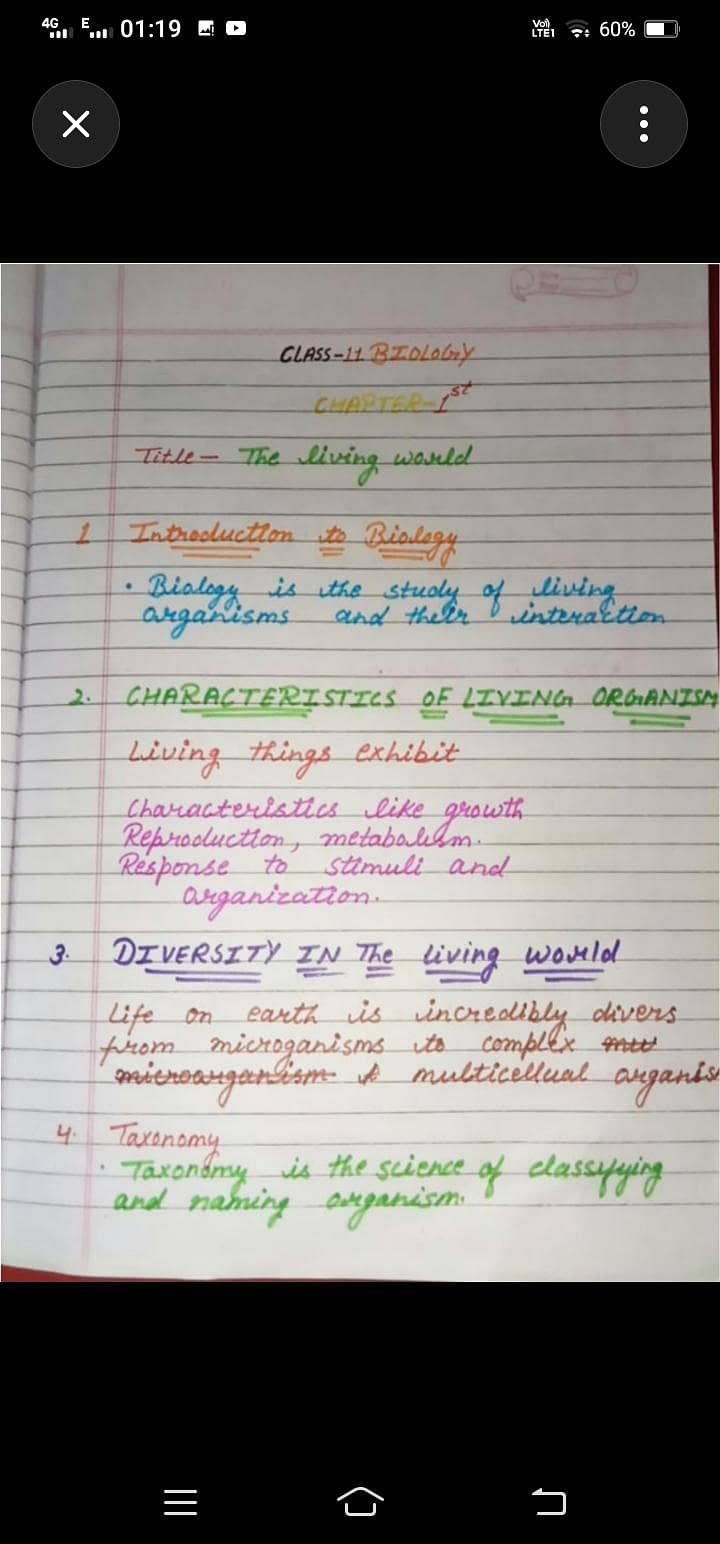 4G E 01:19 Vo) LTE1 60%
CLASS-11 BIOLOGY
CHAPTER-1st
Title - The living world
1 Introduction to Biology
• Biology is the study of living
organisms and their interaction
2. CHARACTERISTICS OF LIVING ORGANISM
Living things exhibit
Characteristics like growth
Reproduction, metabolism.
Response to stimuli and
organization.
3. DIVERSITY IN The living world
Life on earth is incredibly divers
from microganisms to complex
microorganism multicellual organis
4. Taxonomy
• Taxonomy is the science of classyying
and naming organism.